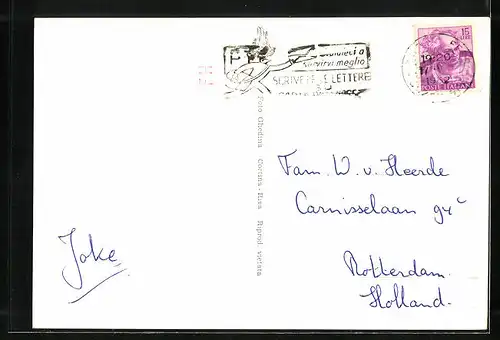 Aiutateci a
servirvi meglio
SCRIVETE LE LETTERE
15
LIRE
POSTE ITALIANE
Foto Ghedina Cortina - Riprod. vietata
Fam. W. v. Heerde
Carnisselaan 94c
Rotterdam.
Holland.
Joke